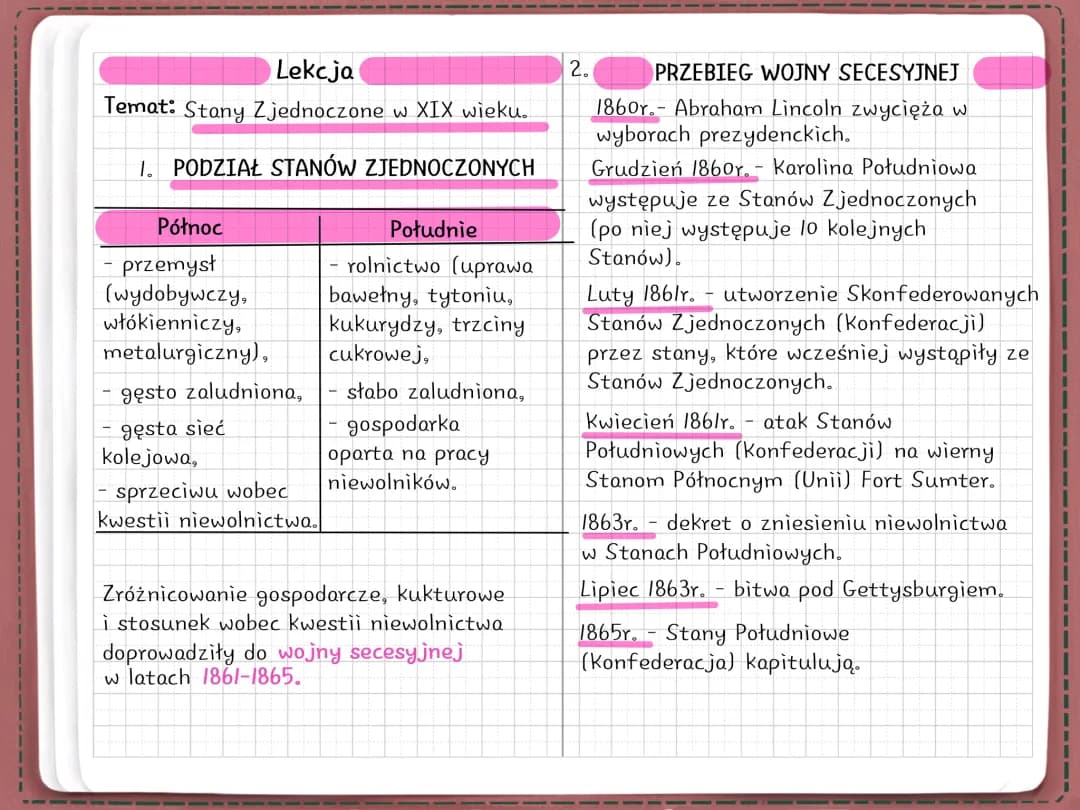 Lekcja
Temat: Stany Zjednoczone w XIX wieku.
1. PODZIAŁ STANÓW ZJEDNOCZONYCH
Północ
- przemysł
(wydobywczy,
włókienniczy,
metalurgiczny),
- gęsto zaludniona,
- gęsta sieć
kolejowa,
- sprzeciwu wobec
kwestii niewolnictwa.
Południe
- rolnictwo (uprawa
bawełny, tytoniu,
kukurydzy, trzciny
cukrowej,
- słabo zaludniona,
- gospodarka
oparta na pracy
niewolników.
Zróżnicowanie gospodarcze, kukturowe
i stosunek wobec kwestii niewolnictwa
doprowadziły do wojny secesyjnej
w latach 1861-1865.
2. PRZEBIEG WOJNY SECESYJNEJ
1860r.- Abraham Lincoln zwycięża w
wyborach prezydenckich.
Grudzień 1860r. - Karolina Południowa
występuje ze Stanów Zjednoczonych
(po niej występuje 10 kolejnych
Stanów).
Luty 1861r. - utworzenie Skonfederowanych
Stanów Zjednoczonych (Konfederacji)
przez stany, które wcześniej wystąpiły ze
Stanów Zjednoczonych.
Kwiecień 1861r. - atak Stanów
Południowych (Konfederacji) na wierny
Stanom Północnym (Unii) Fort Sumter.
1863r. - dekret o zniesieniu niewolnictwa
w Stanach Południowych.
Lipiec 1863r. - bitwa pod Gettysburgiem.
1865r. - Stany Południowe
(Konfederacja) kapitulują.